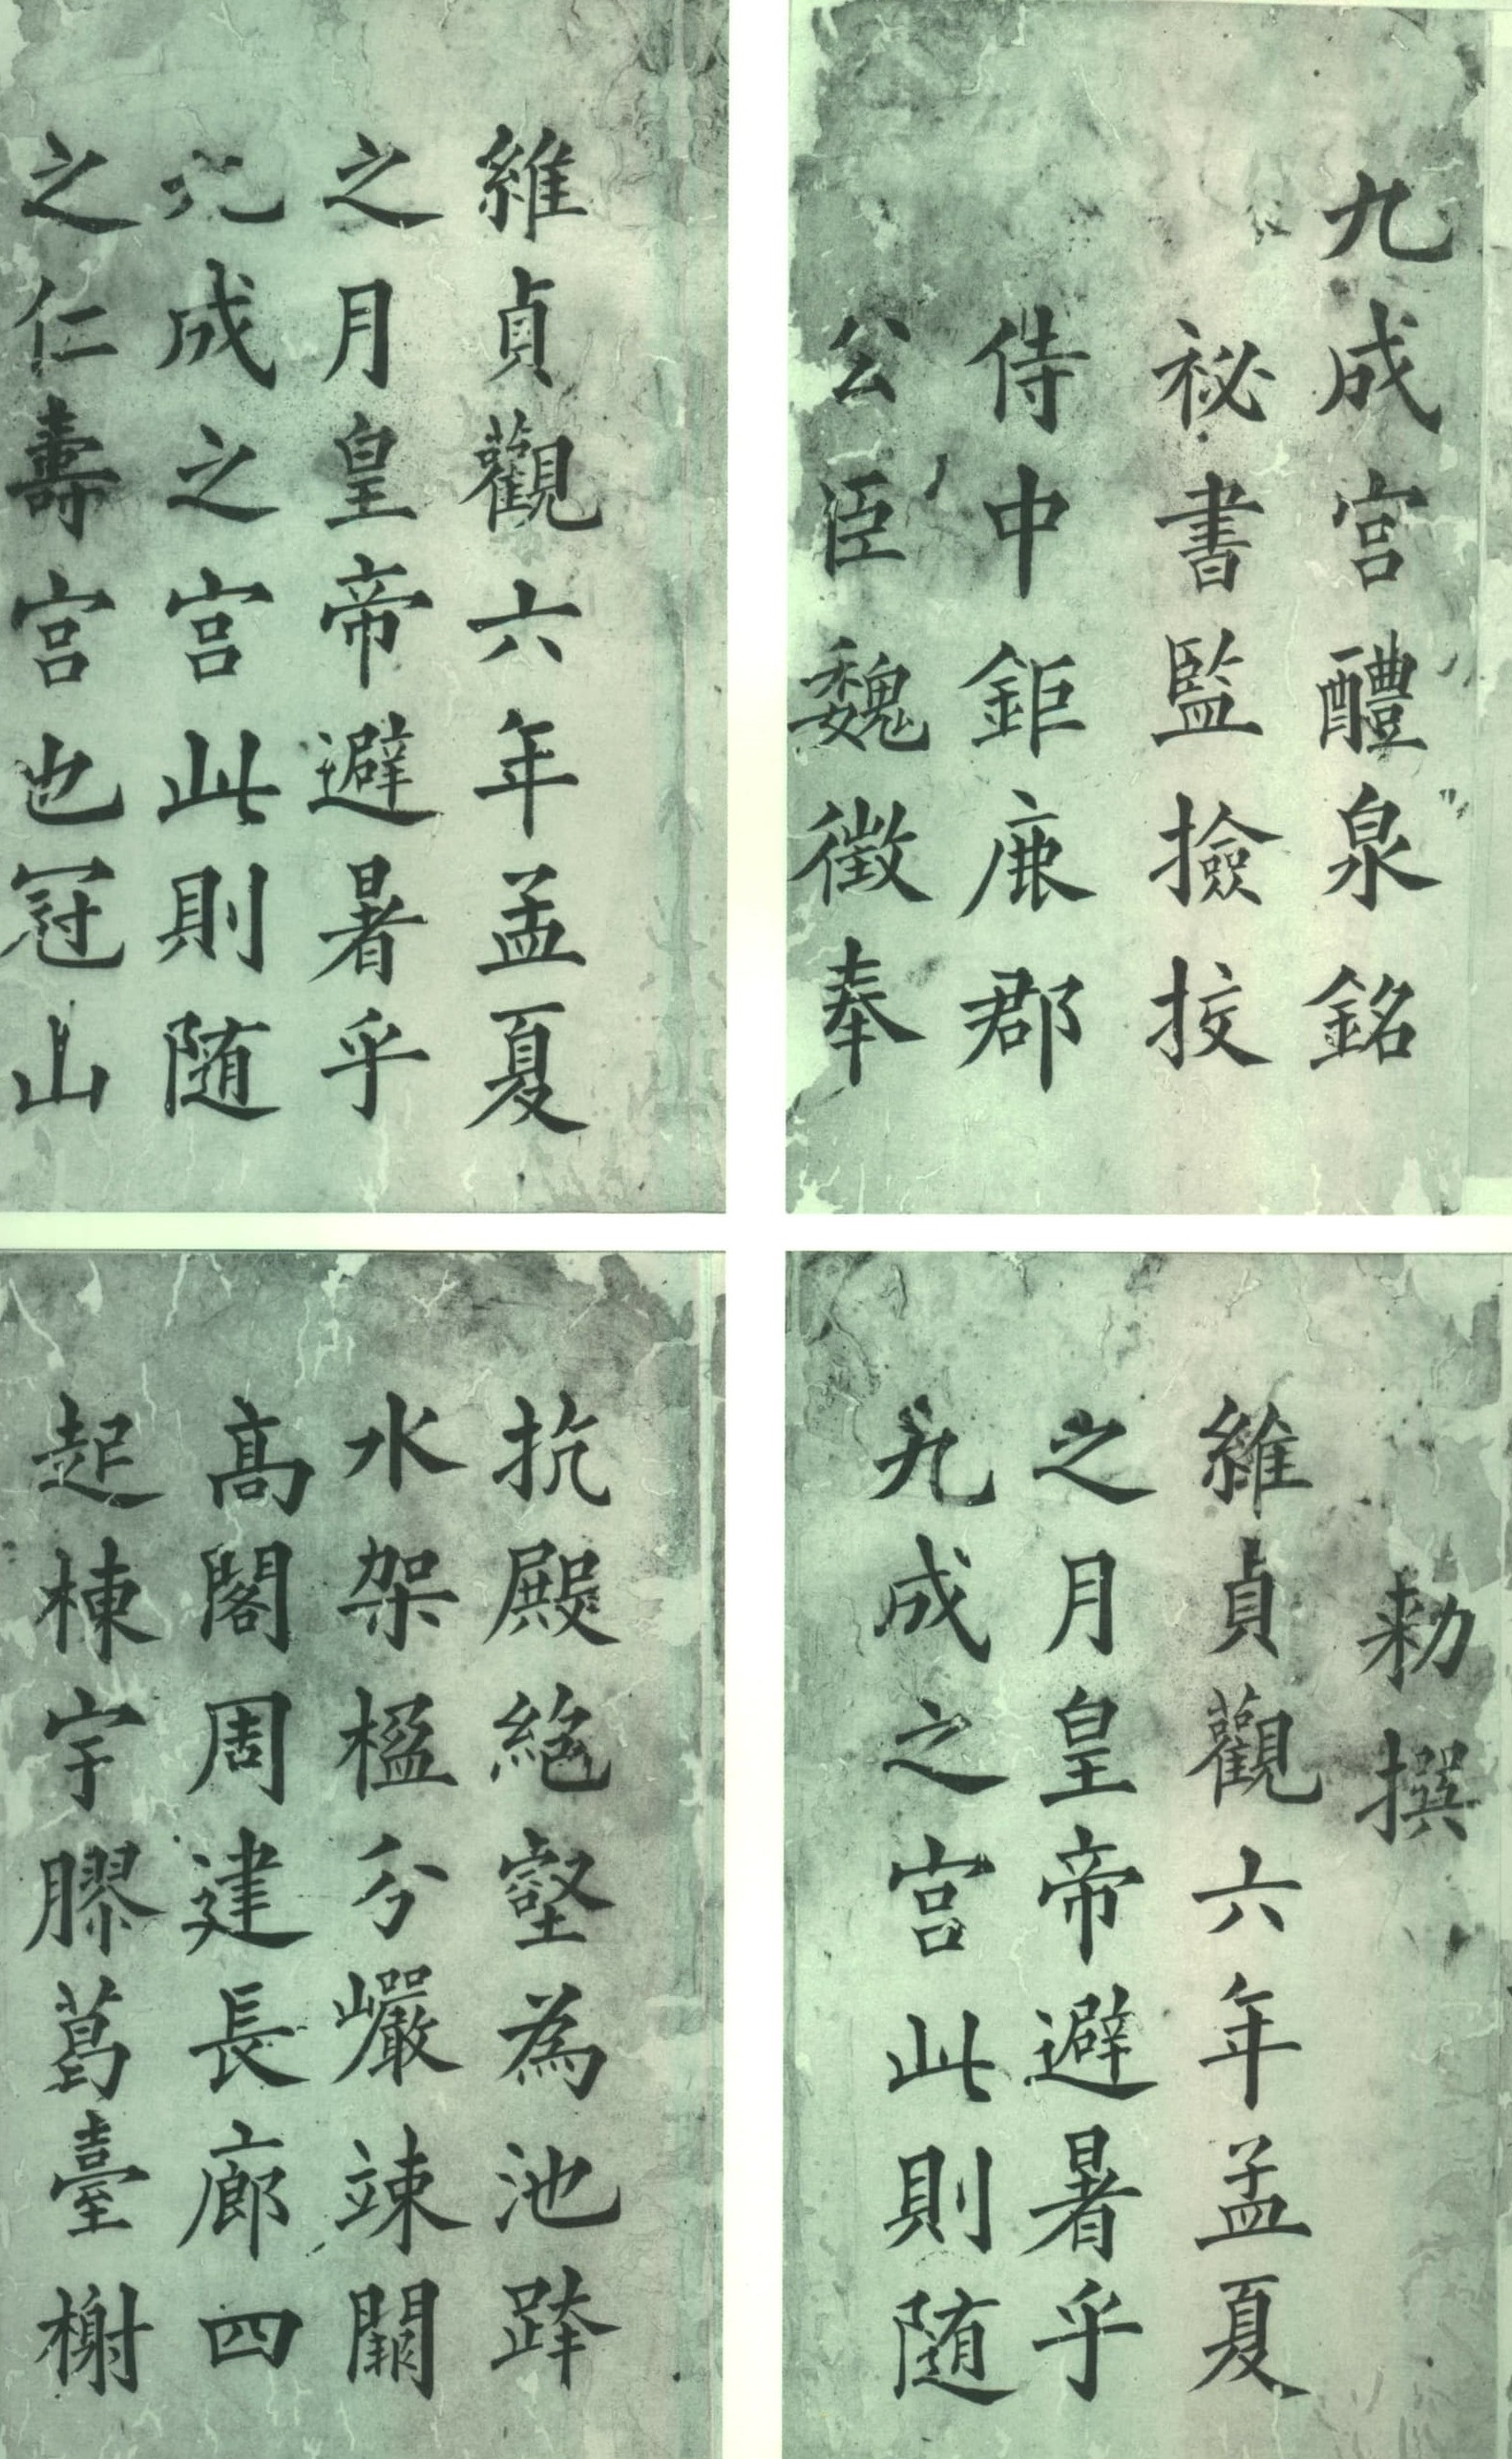 九成宮醴泉銘
祕書監撿挍
侍中鉅鹿郡
公臣魏徵奉
勑撰
維貞觀六年孟夏
之月皇帝避暑乎
九成之宮此則随
維貞觀六年孟夏
之月皇帝避暑乎
九成之宮此則随
之仁壽宮也冠山
抗殿絕壑為池跨
水架楹分巖竦闕
高閣周建長廊四
起棟宇膠葛臺榭